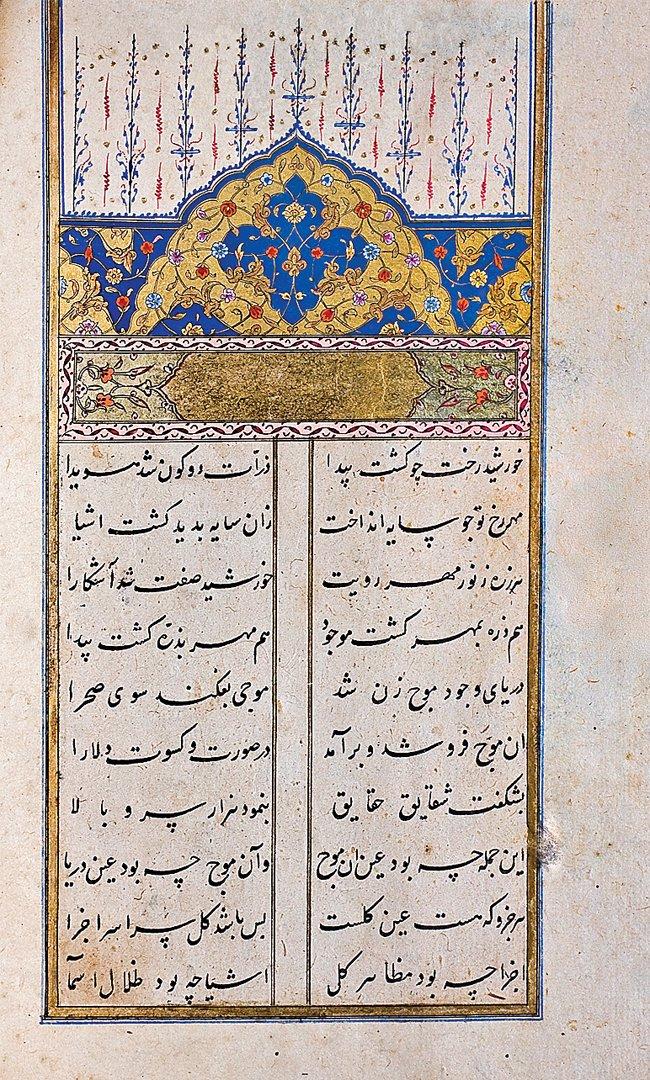 خورشید رخت چو کشت پیدا ذرات دو کون شد هویدا
مهر رخ تو جو سایه انداخت زان سایه بدید کشت اشیا
هر ذره ز نور مهر رویت خورشید صفت شد آشکارا
هم ذره بمهر کشت موجود هم مهر بذره کشت پیدا
دریای وجود موج زن شد موجی بفکند سوی صحرا
ان موج فرو شد و برآمد در صورت و کسوت دلارا
بشکفت شقایق حقایق بنمود هزار سرو بالا
این جمله چه بود عین ان موج وآن موج چه بود عین دریا
هر جزو که هست عین کلست بس باشد کل سراسر اجزا
اجزا چه بود مظاهر کل اشیا چه بود ظلال اسما